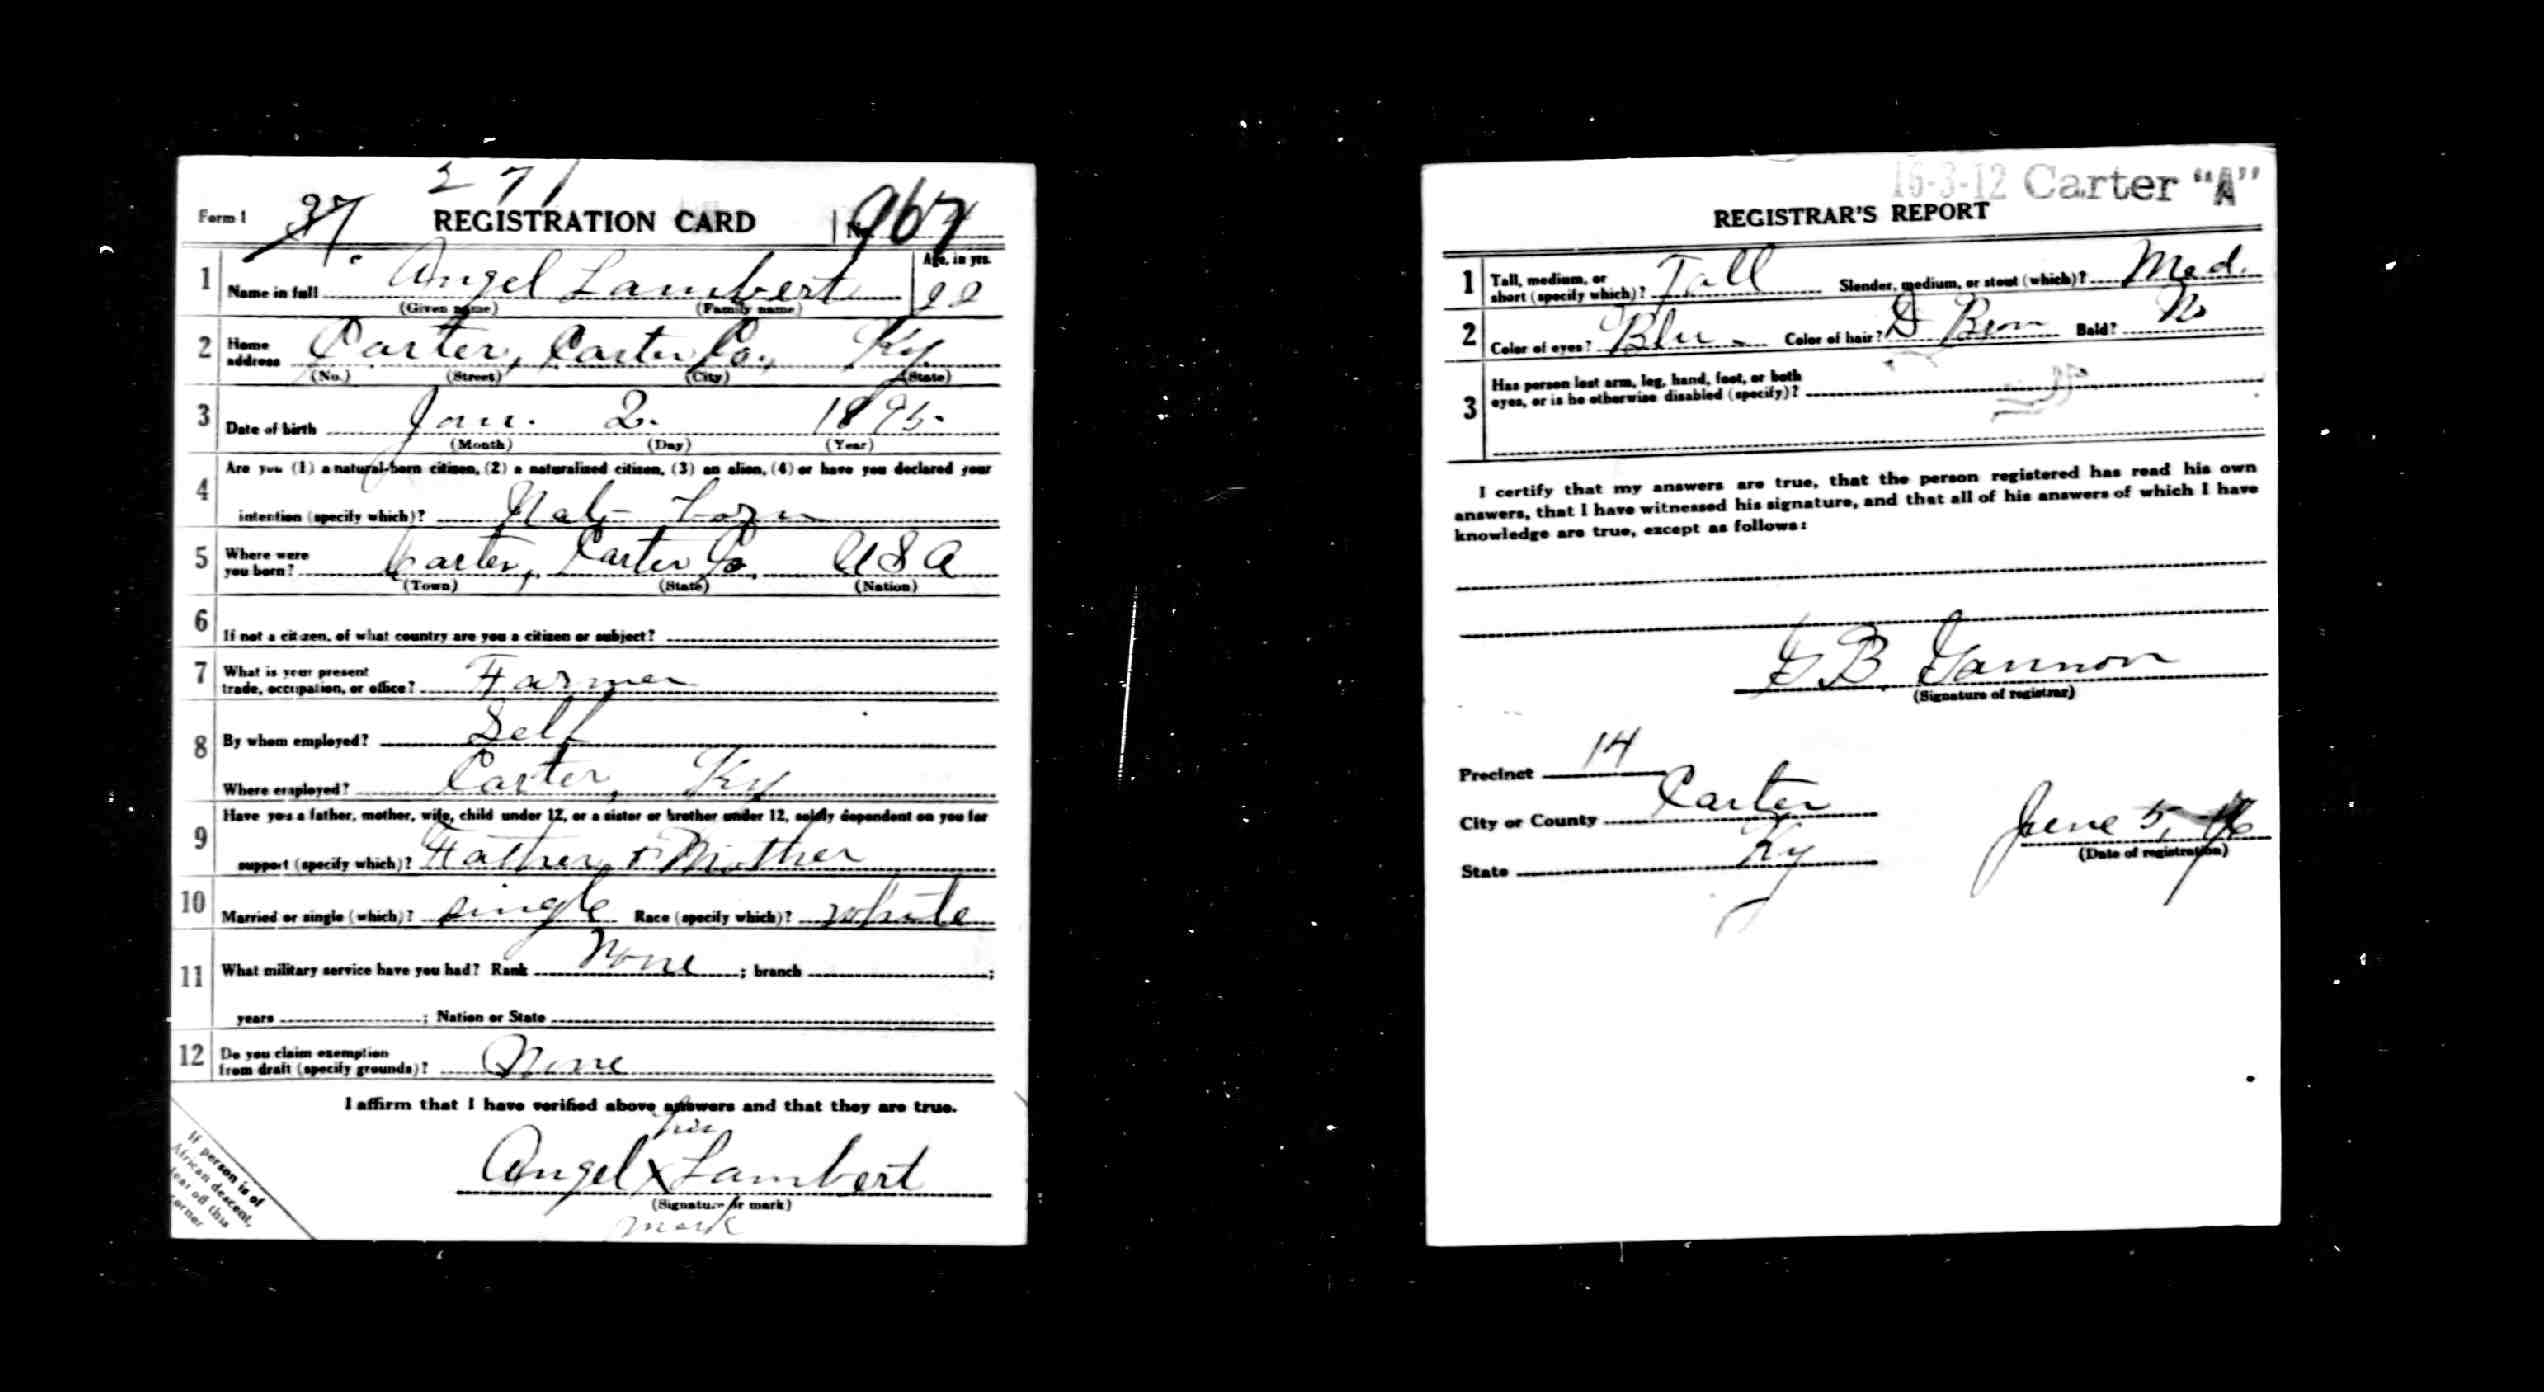 271
Form 1 37 REGISTRATION CARD No. 967
1 Name in full Angel Lambert Age, in yrs. 22
(Given name) (Family name)
2 Home address Carter, Carter Co., Ky.
(No.) (Street) (City) (State)
3 Date of birth Jan. 2. 1895.
(Month) (Day) (Year)
4 Are you (1) a natural-born citizen, (2) a naturalized citizen, (3) an alien, (4) or have you declared your
intention (specify which)? Nat- born
5 Where were you born? Carter, Carter Co. USA
(Town) (State) (Nation)
6 If not a citizen, of what country are you a citizen or subject?
7 What is your present trade, occupation, or office? Farmer
8 By whom employed? Self
Where employed? Carter, Ky
9 Have you a father, mother, wife, child under 12, or a sister or brother under 12, solely dependent on you for
support (specify which)? Father + Mother
10 Married or single (which)? single Race (specify which)? white
11 What military service have you had? Rank None ; branch ;
years ; Nation or State
12 Do you claim exemption from draft (specify grounds)? None
I affirm that I have verified above answers and that they are true.
his
Angel X Lambert
(Signature or mark)
mark
If person is of
African descent,
tear off this
corner
16-3-12 Carter "A"
REGISTRAR'S REPORT
1 Tall, medium, or short (specify which)? Tall Slender, medium, or stout (which)? Med.
2 Color of eyes? Blu Color of hair? D Bron Bald? No
3 Has person lost arm, leg, hand, foot, or both
eyes, or is he otherwise disabled (specify)?
I certify that my answers are true, that the person registered has read his own
answers, that I have witnessed his signature, and that all of his answers of which I have
knowledge are true, except as follows:
G B Gannon
(Signature of registrar)
Precinct 14
City or County Carter
State Ky
June 5,
(Date of registration)